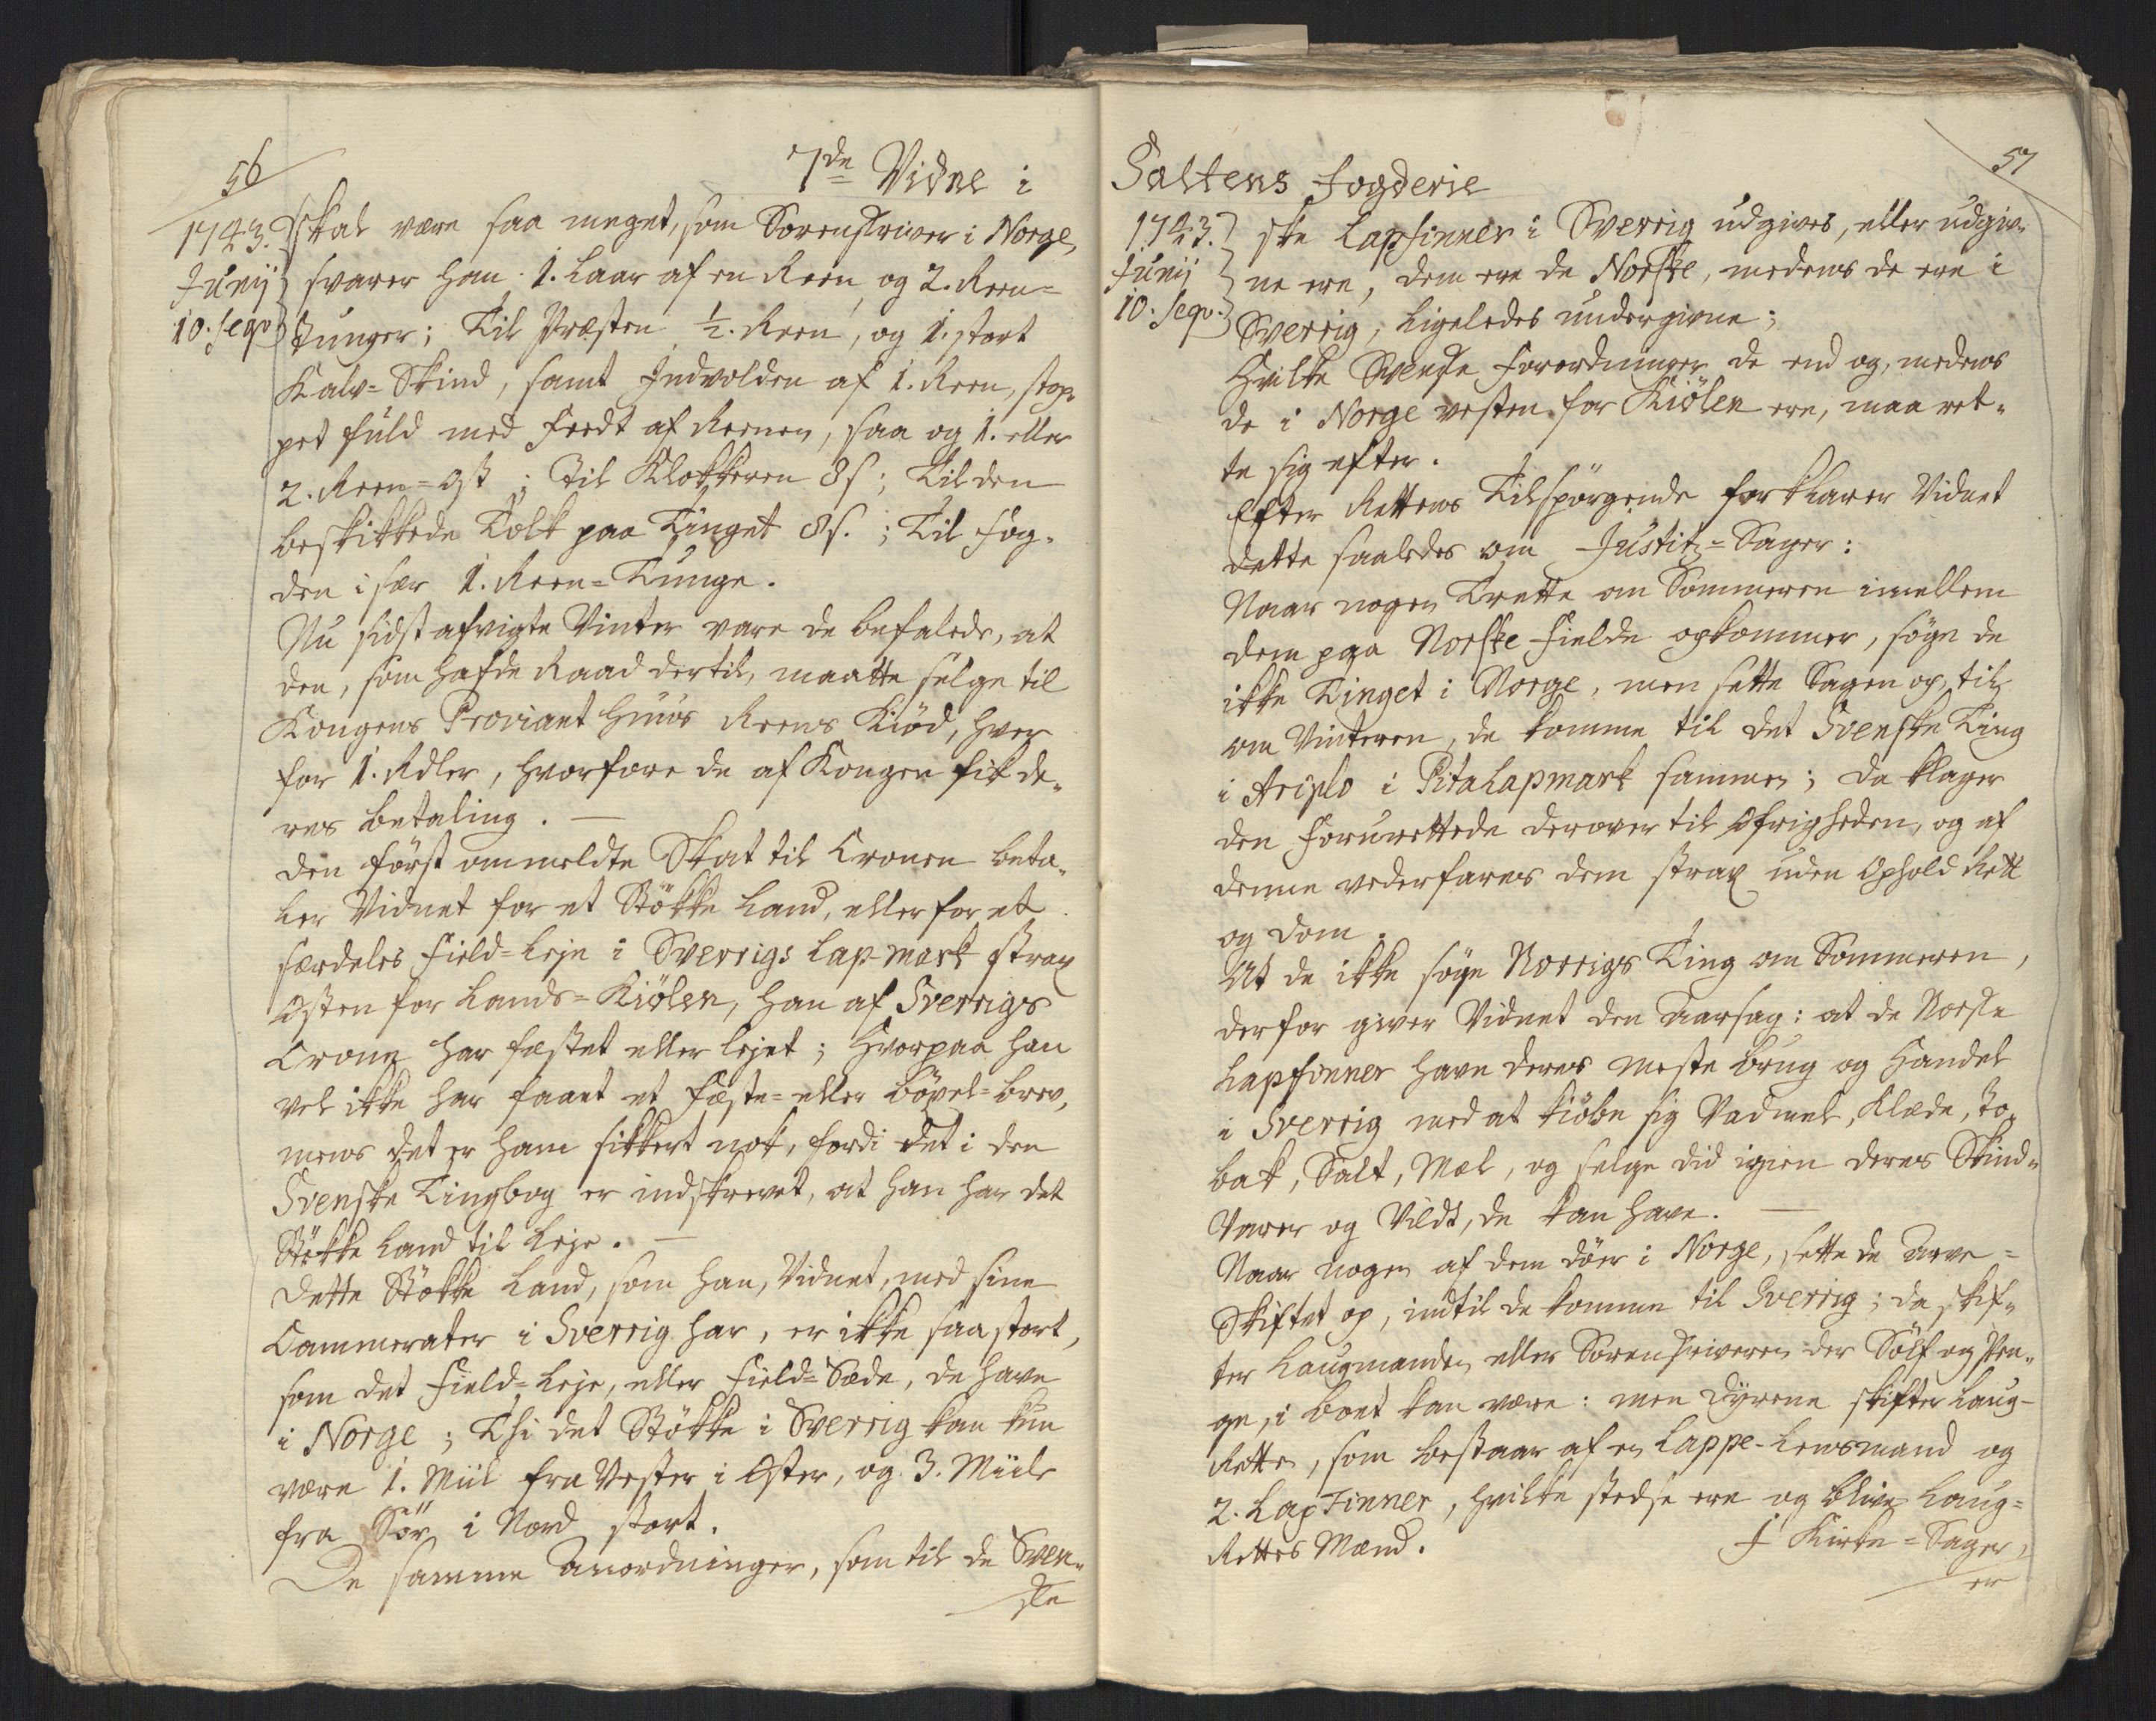 56
7de Vidne i
1743.
Junij
10. seqv.
skal være saa meget, som Sorenskriver i Norge,
svarer han 1. Laar af en Reen, og 2. Reen-
Tunger; Til Præsten ½. Reen, og 1. stort
Kalv-Skind, samt Indvolden af 1. Reen, stop-
pet fuld med Feedt af Reenen, saa og 1. eller
2. Reen-Ost; Til Klokkeren 8 s; Til den
beskikkede Tolk paa Tinget 8 s.; Til Fog-
den i sær 1. Reen-Tunge.
Nu sidst afvigte Vinter vare de befalede, at
den, som hafde Raad dertil, maatte selge til
Kongens Proviant Huus Reens Kiød, hver
for 1. Rdler, hvorfore de af Kongen fik de-
res betaling. —
Den først ommeldte Skat til Cronen beta-
ler Vidnet for et Støkke Land, eller for et
særdeles Field-Leje i Sverrigs Lap-mark strax
Østen for Lands-Kiølen, han af Sverrigs
Crone har fæstet eller lejet; Hvorpaa han
vel ikke har faaet et Fæste- eller Böxel-brev,
mens det er ham sikkert nok, fordi det i den
Svenske Tingbog er indskrevet, at han har det
Støkke Land til Leje. —
Dette Støkke Land, som han, Vidnet, med sine
Cammerater i Sverrig har, er ikke saa stort,
som det Field-Leje, eller Field-Sæde, de have
i Norge; Thi det Støkke i Sverrig kan kun
være 1. Miil fra Vester i Øster, og 3. Miile
fra Sør i Nord stort.
De samme Anordninger, som til de Sven-
ske
Saltens Fogderie
57
1743.
Junij
10. seqv.
ske Lapfinner i Sverrig udgives, eller udgiv-
ne ere, dem ere de Norske, medens de ere i
Sverrig, ligeledes undergivne;
Hvilke Svenske Forordninger de end og, medens
de i Norge vesten for Kiölen ere, maa ret-
te sig efter.
Efter Rettens Tilspørgende forklarer Vidnet
dette saaledes om Justitz-Sager:
Naar nogen Trette om Sommeren imellem
dem paa Norske Fielde opkommer, søge de
ikke Tinget i Norge, men sette Sagen op, til
om Vinteren, de komme til det Svenske Ting
i Ariplo i Pita Lapmark sammen; da klager
den Forurettede derover til Øfrigheden, og af
denne vederfares dem strax uden Ophold Rett
og Dom.
At de ikke søge Norrigs Ting om Sommeren,
derfor giver Vidnet den Aarsag: at de Norske
Lapfinner have deres meste brug og Handel
i Sverrig med at kiøbe sig Vadmel, Klæde, To-
bak, Salt, Mæl, og selge did igien deres Skind-
Varer og Vildt, de kan have. —
Naar nogen af dem döer i Norge, sette de Arve-
Skiftet op, indtil de komme til Sverrig; da skif-
ter Laugmanden eller Sorenskriveren der Sølf og Pen-
ge, i Boet kan være: men Dyrene skifter Laug-
Retten, som bestaar af en Lappe-Lensmand og
2. LapFinner, hvilke stedse ere og blive Laug-
Rettes Mænd.
I Kirke-Sager,
er